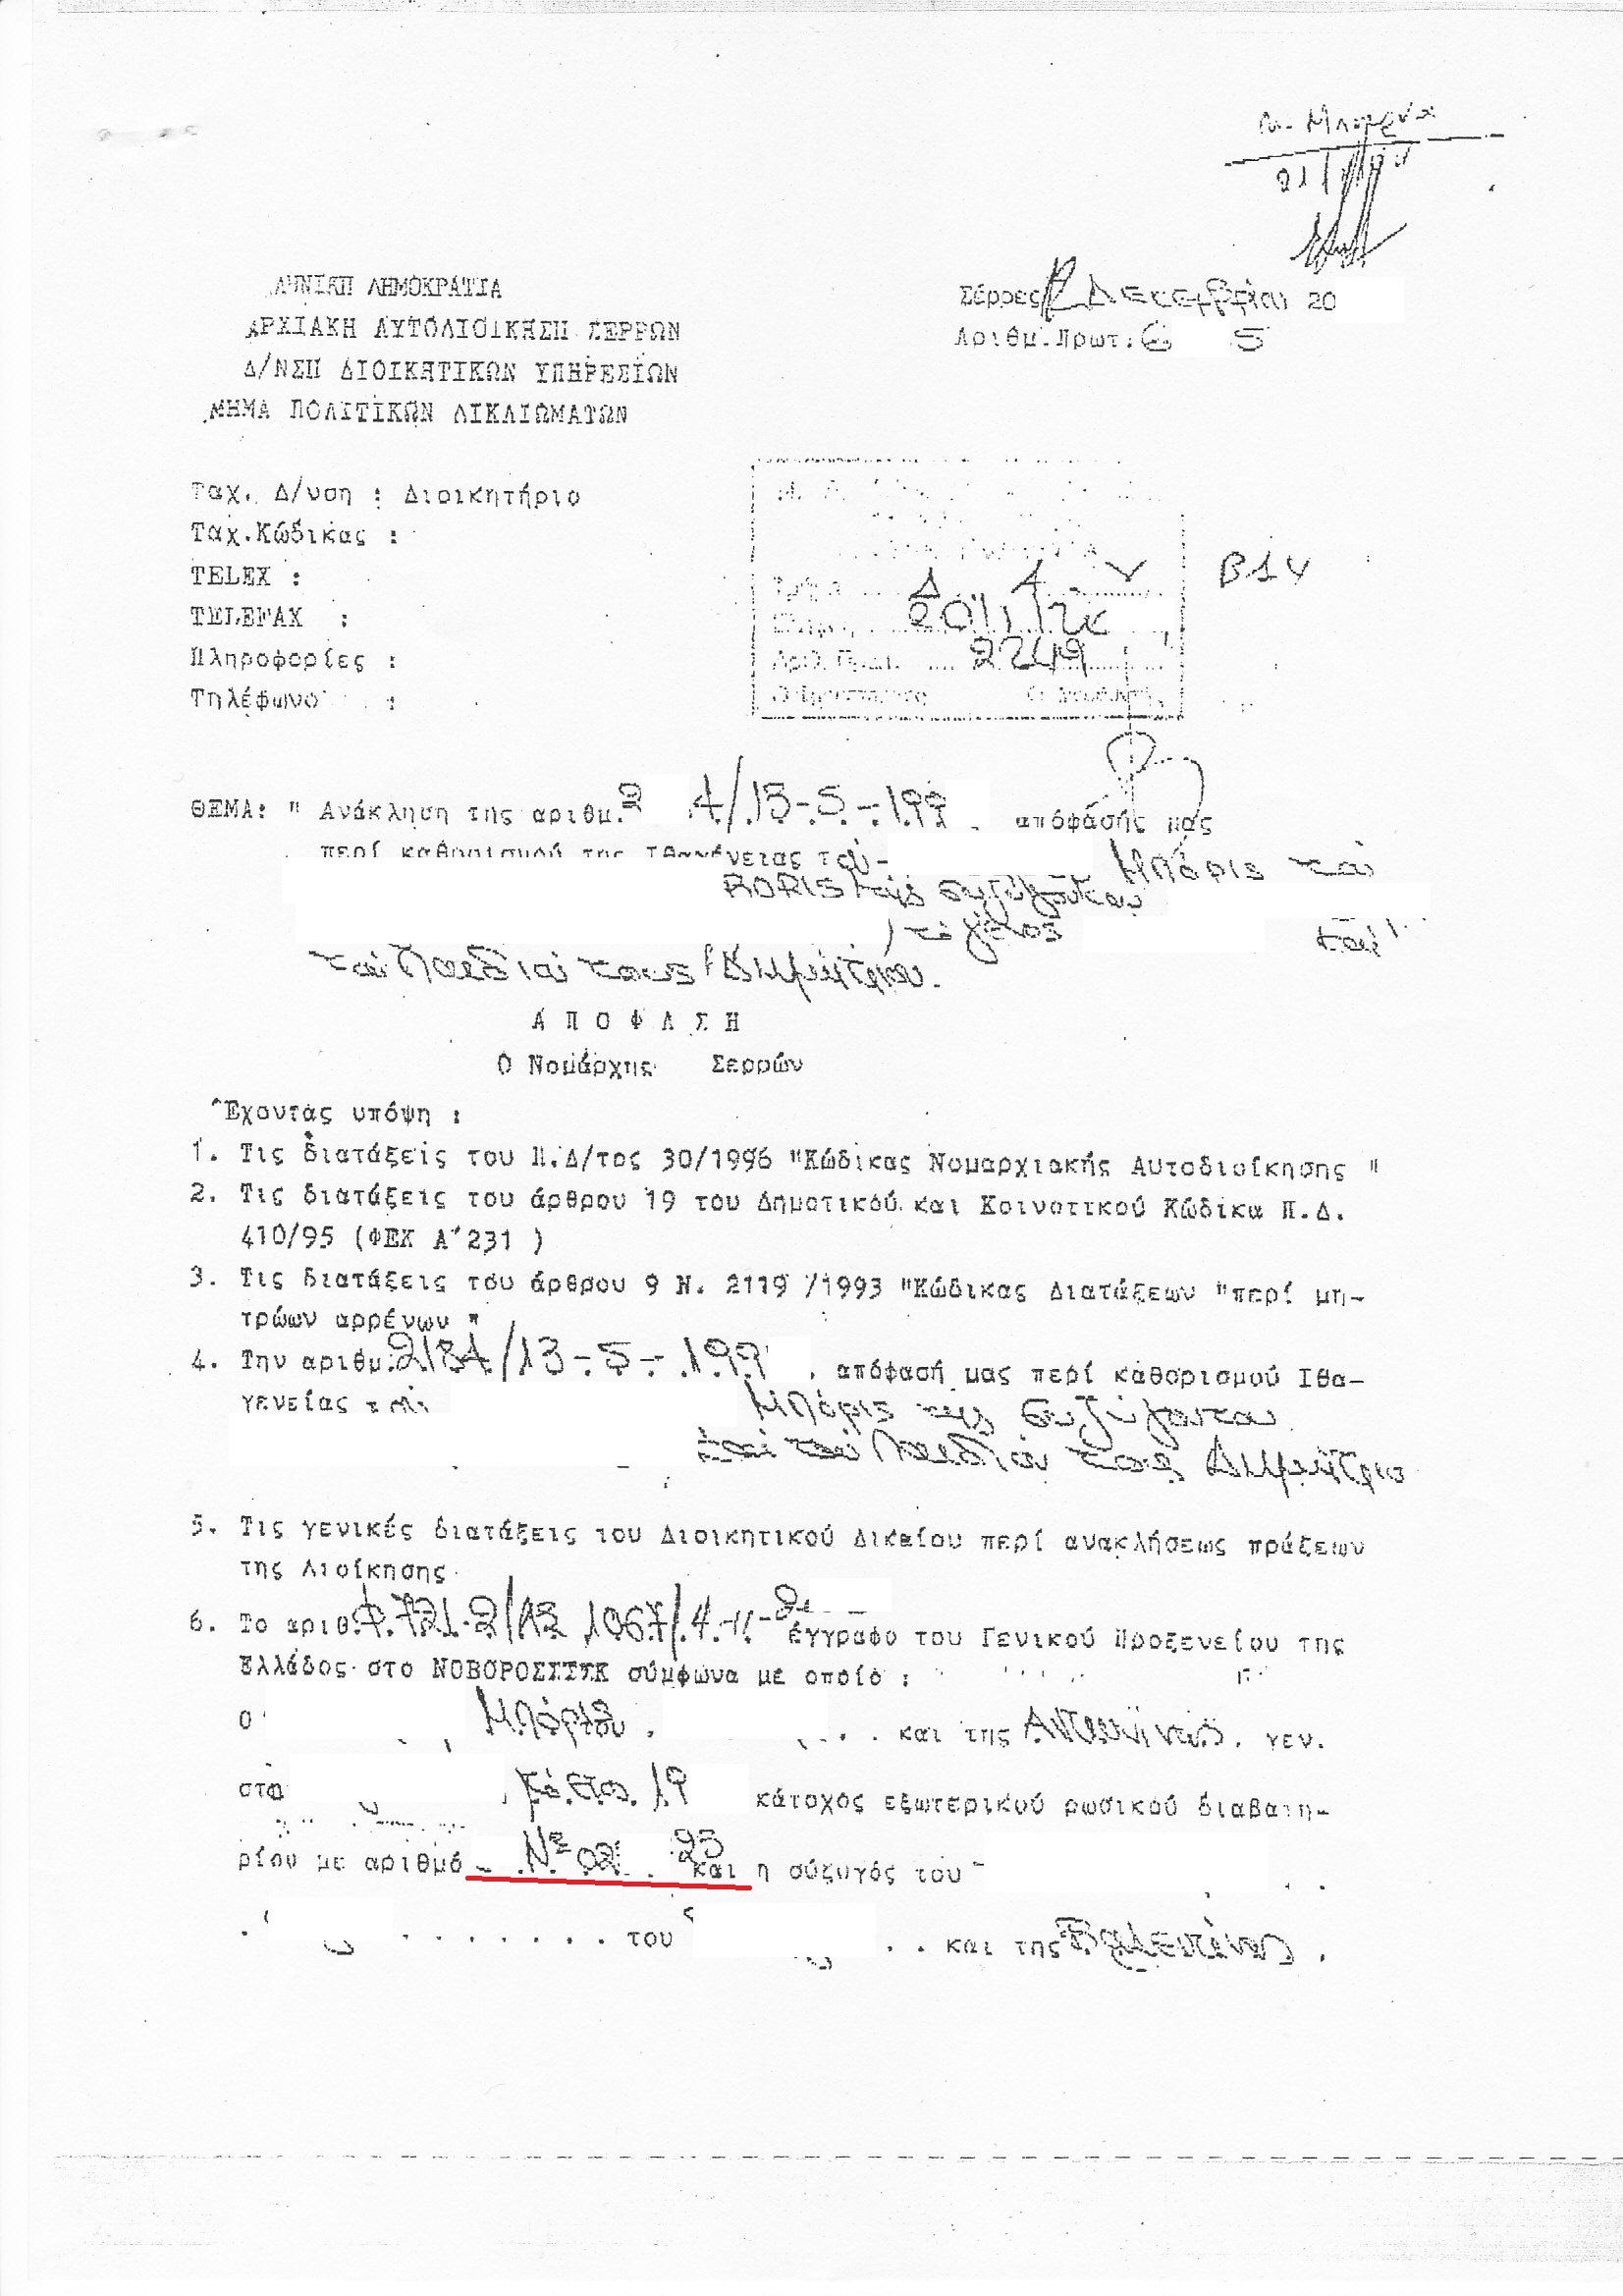 ΔΗΜΟΚΡΑΤΙΑ
ΑΥΤΟΔΙΟΙΚΗΣΗ ΣΕΡΡΩΝ
Δ/ΝΣΗ ΔΙΟΙΚΗΤΙΚΩΝ ΥΠΗΡΕΣΙΩΝ
ΠΟΛΙΤΙΚΩΝ ΔΙΚΑΙΩΜΑΤΩΝ
Σέρρες Δεκεμβρίου 20
Αριθμ.Πρωτ.:6 5
Ταχ. Δ/νση : Διοικητήριο
Ταχ.Κώδικας :
TELEX :
TELEFAX :
Πληροφορίες :
Τηλέφωνο :
Δ 1
2249
ΘΕΜΑ: " Ανάκληση της αριθμ. 2 4/13-5-199 απόφασής μας
περί καθορισμού της Ιθαγένειας του Μπόρις του
BORIS της συζύγου του
το γένος και
του παιδιού τους Δημητρίου.
Α Π Ο Φ Α Σ Η
Ο Νομάρχης Σερρών
Έχοντας υπόψη :
1. Τις διατάξεις του Π.Δ/τος 30/1996 "Κώδικας Νομαρχιακής Αυτοδιοίκησης "
2. Τις διατάξεις του άρθρου 19 του Δημοτικού και Κοινοτικού Κώδικα Π.Δ.
410/95 (ΦΕΚ Α΄231 )
3. Τις διατάξεις του άρθρου 9 Ν. 2119 /1993 "Κώδικας Διατάξεων "περί μη-
τρώων αρρένων "
4. Την αριθμ.2134/13-5-199 , απόφασή μας περί καθορισμού Ιθα-
γενείας του Μπόρις της συζύγου του
και του παιδιού τους Δημητρίου
5. Τις γενικές διατάξεις του Διοικητικού Δικαίου περί ανακλήσεως πράξεων
της Διοίκησης
6. Το αριθ. έγγραφο του Γενικού Προξενείου της
Ελλάδος στο ΝΟΒΟΡΟΣΣΙΣΚ σύμφωνα με οποίο :
Ο Μπόρις του . . . και της Αντωνίνας. γεν.
στο το έτος 19 κάτοχος εξωτερικού ρωσικού διαβατη-
ρίου με αριθμό Nº 02 25 και η σύζυγός του
. . . . . . . του . . και της Βαλεντίνας .